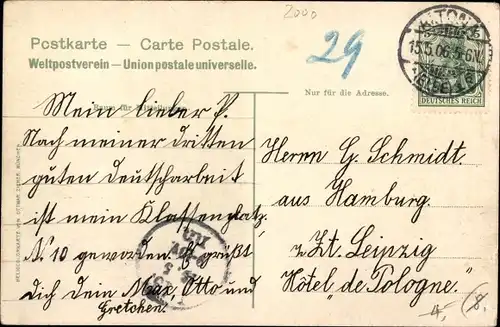 2000
Postkarte — Carte Postale.
Weltpostverein — Union postale universelle.
29
15.5.06.5-6N.
DEUTSCHES REICH
Raum für Mitteilungen.
Nur für die Adresse.
Mein lieber P.
Nach meiner dritten
guten Deutscharbeit
ist mein Klassenplatz
No 10 geworden. Es grüßt
Dich Dein Max, Otto und
Gretchen.
Herrn G. Schmidt
aus Hamburg
z. Zt. Leipzig
Hôtel de Pologne.